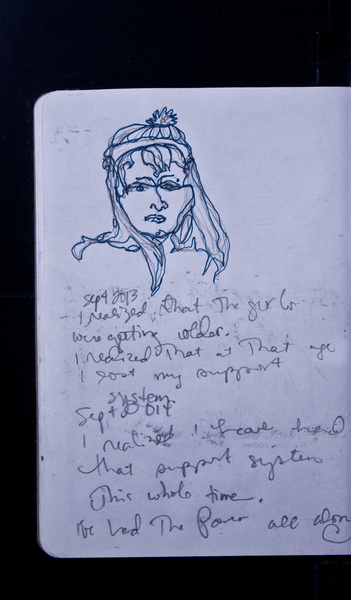 Sept 2013
I realized that The girls
were getting older.
I realized That at That age
I lost my support
system.
Sept 2014
I realized I have had
that support system
This whole time.
I've had The Power all along